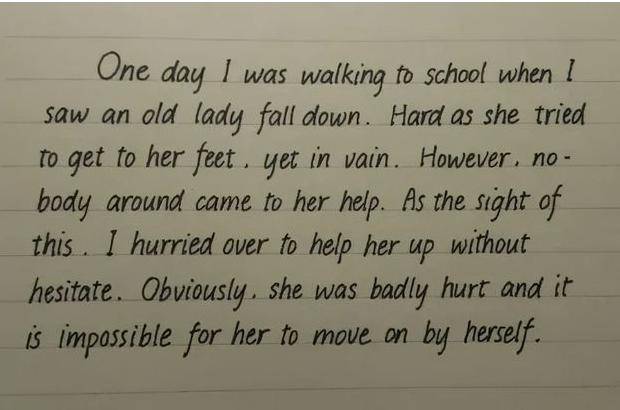 One day I was walking to school when I
saw an old lady fall down. Hard as she tried
to get to her feet, yet in vain. However, no-
body around came to her help. As the sight of
this, I hurried over to help her up without
hesitate. Obviously, she was badly hurt and it
is impossible for her to move on by herself.